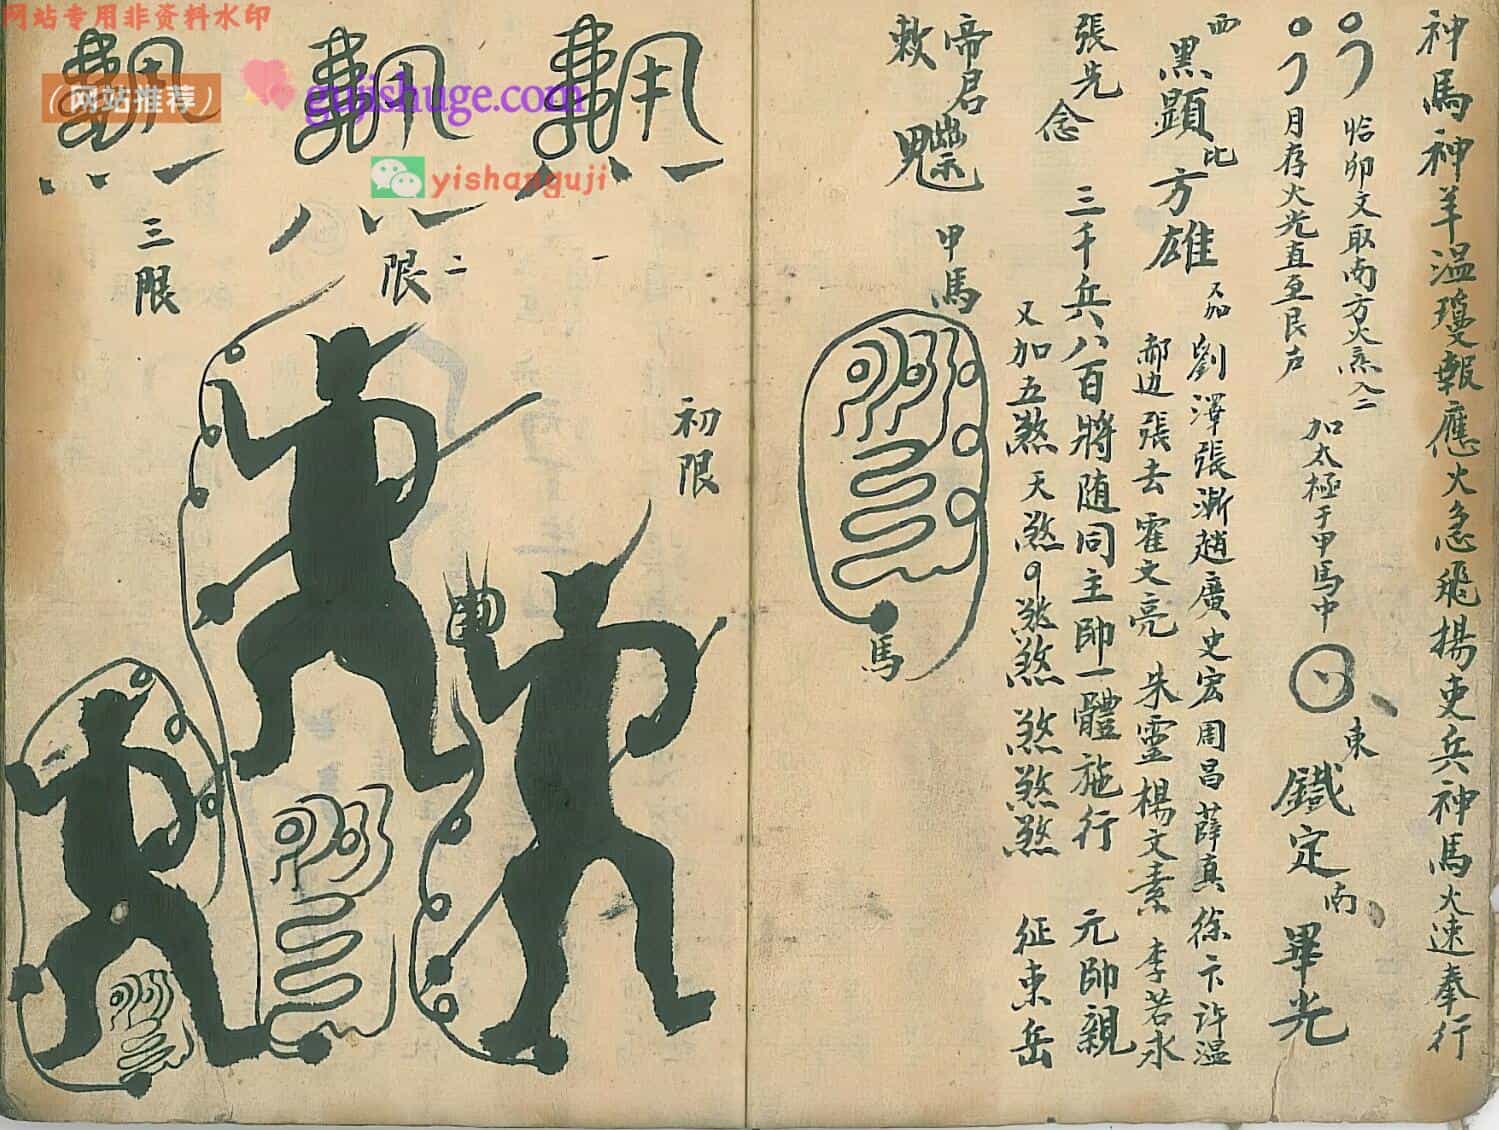 神馬神羊溫瓊報應火急飛揚吏兵神馬火速奉行
恰卯文取南方火炁入二
月存火光直至艮户
加太極于甲馬中
東
鐵定
南
畢光
西
黑顯
比
方雄
又加
劉澤張漸趙廣史宏周昌薛真徐卞許温
郝边張去霍文亮 朱靈楊文素 李若水
張先
念
三千兵八百將随同主帥一體施行 元帥親
又加五煞 天煞 煞煞 煞煞煞 征東岳
帝君
敕
甲馬
馬
一
二
限
三限
初限
网站专用非资料水印
(网站推荐)
gujishuge.com
yishanguji